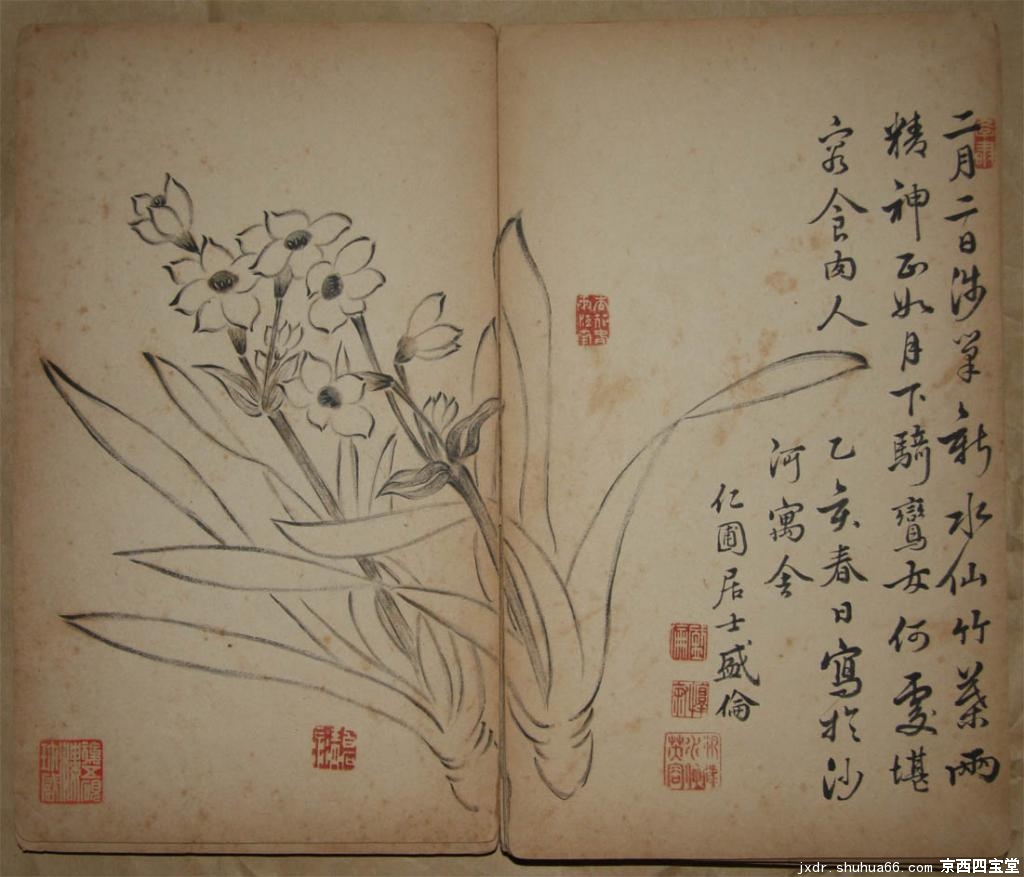 二月二日涉筆新水仙竹葉兩
精神正如月下騎鸞女何處堪
容食肉人
乙亥春日寫於沙
河寓舍
仁圃居士盛倫
jxdr.shuhua66.com 京西四宝堂